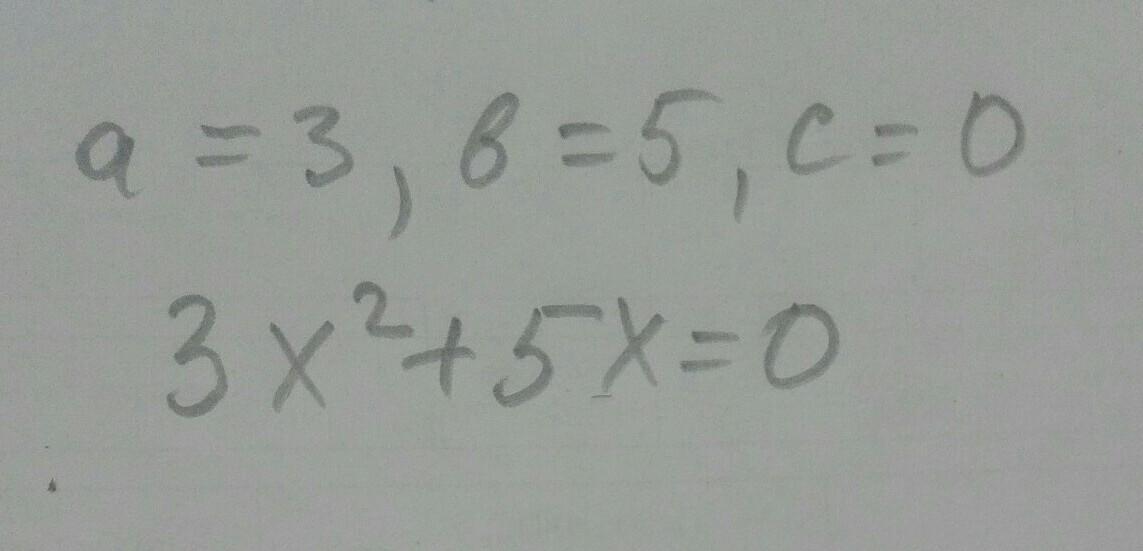 a = 3, в = 5, c = 0
3x² + 5x = 0